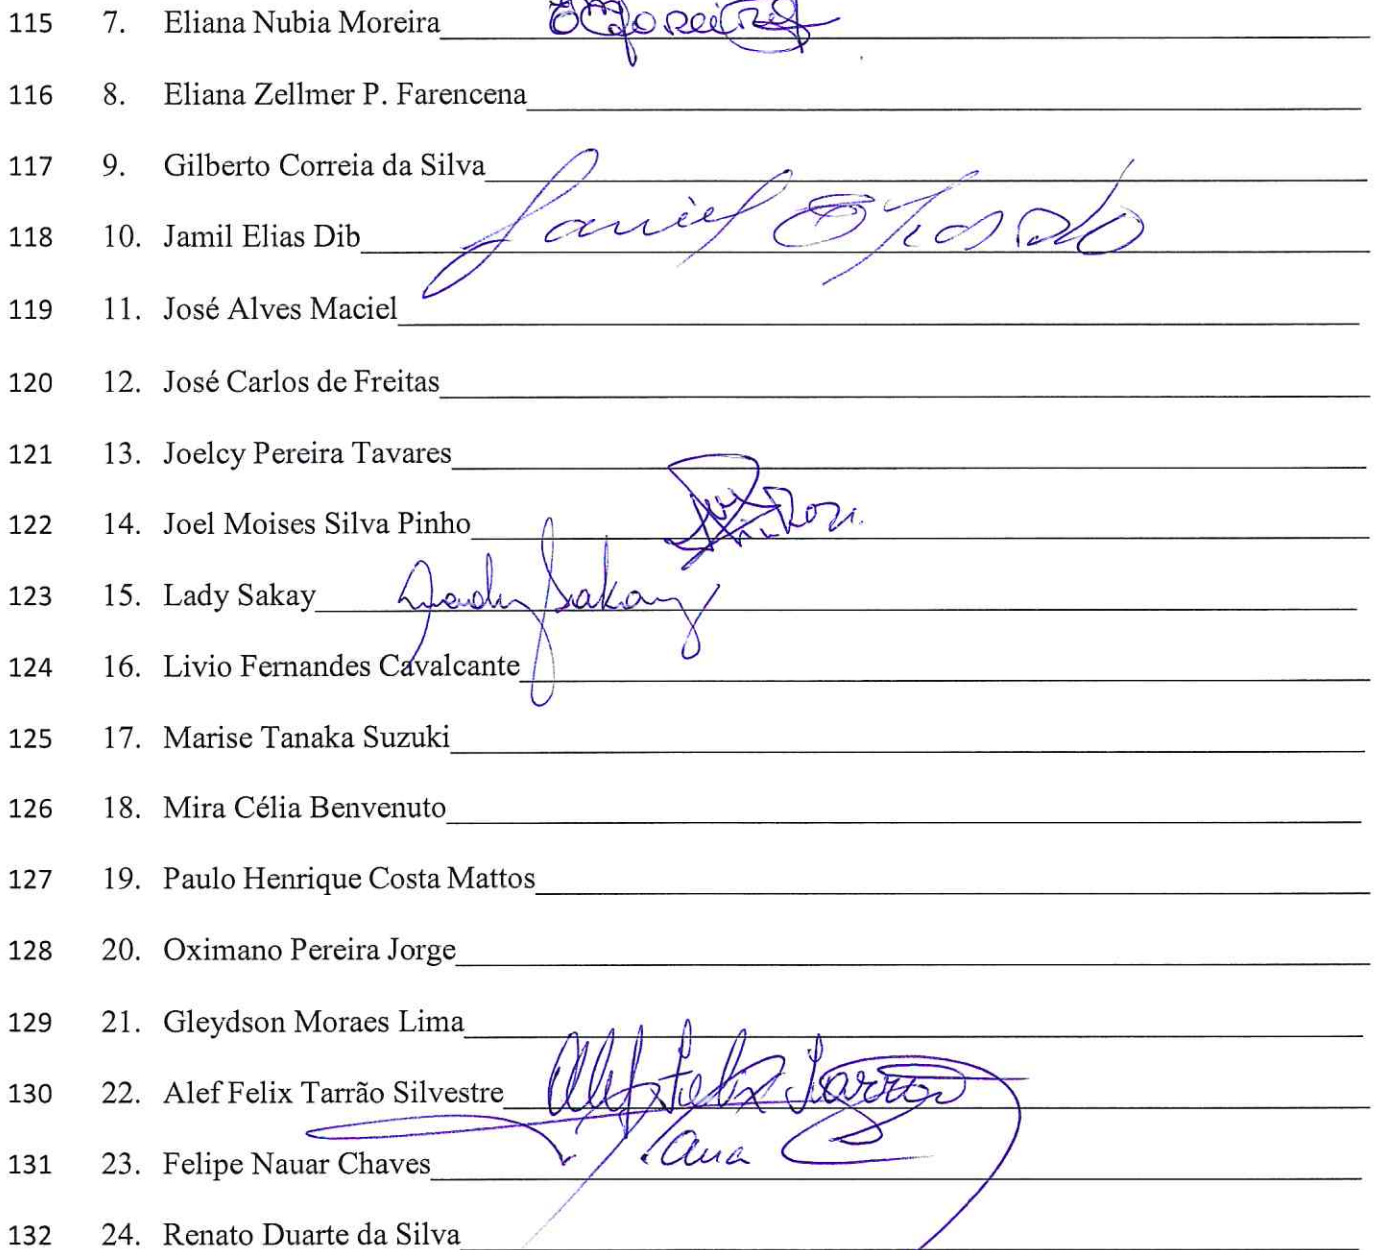 115 7. Eliana Nubia Moreira
116 8. Eliana Zellmer P. Farencena
117 9. Gilberto Correia da Silva
118 10. Jamil Elias Dib
119 11. José Alves Maciel
120 12. José Carlos de Freitas
121 13. Joelcy Pereira Tavares
122 14. Joel Moises Silva Pinho
123 15. Lady Sakay Lady Sakay
124 16. Livio Fernandes Cavalcante
125 17. Marise Tanaka Suzuki
126 18. Mira Célia Benvenuto
127 19. Paulo Henrique Costa Mattos
128 20. Oximano Pereira Jorge
129 21. Gleydson Moraes Lima
130 22. Alef Felix Tarrão Silvestre Alef Felix Tarrão
131 23. Felipe Nauar Chaves
132 24. Renato Duarte da Silva